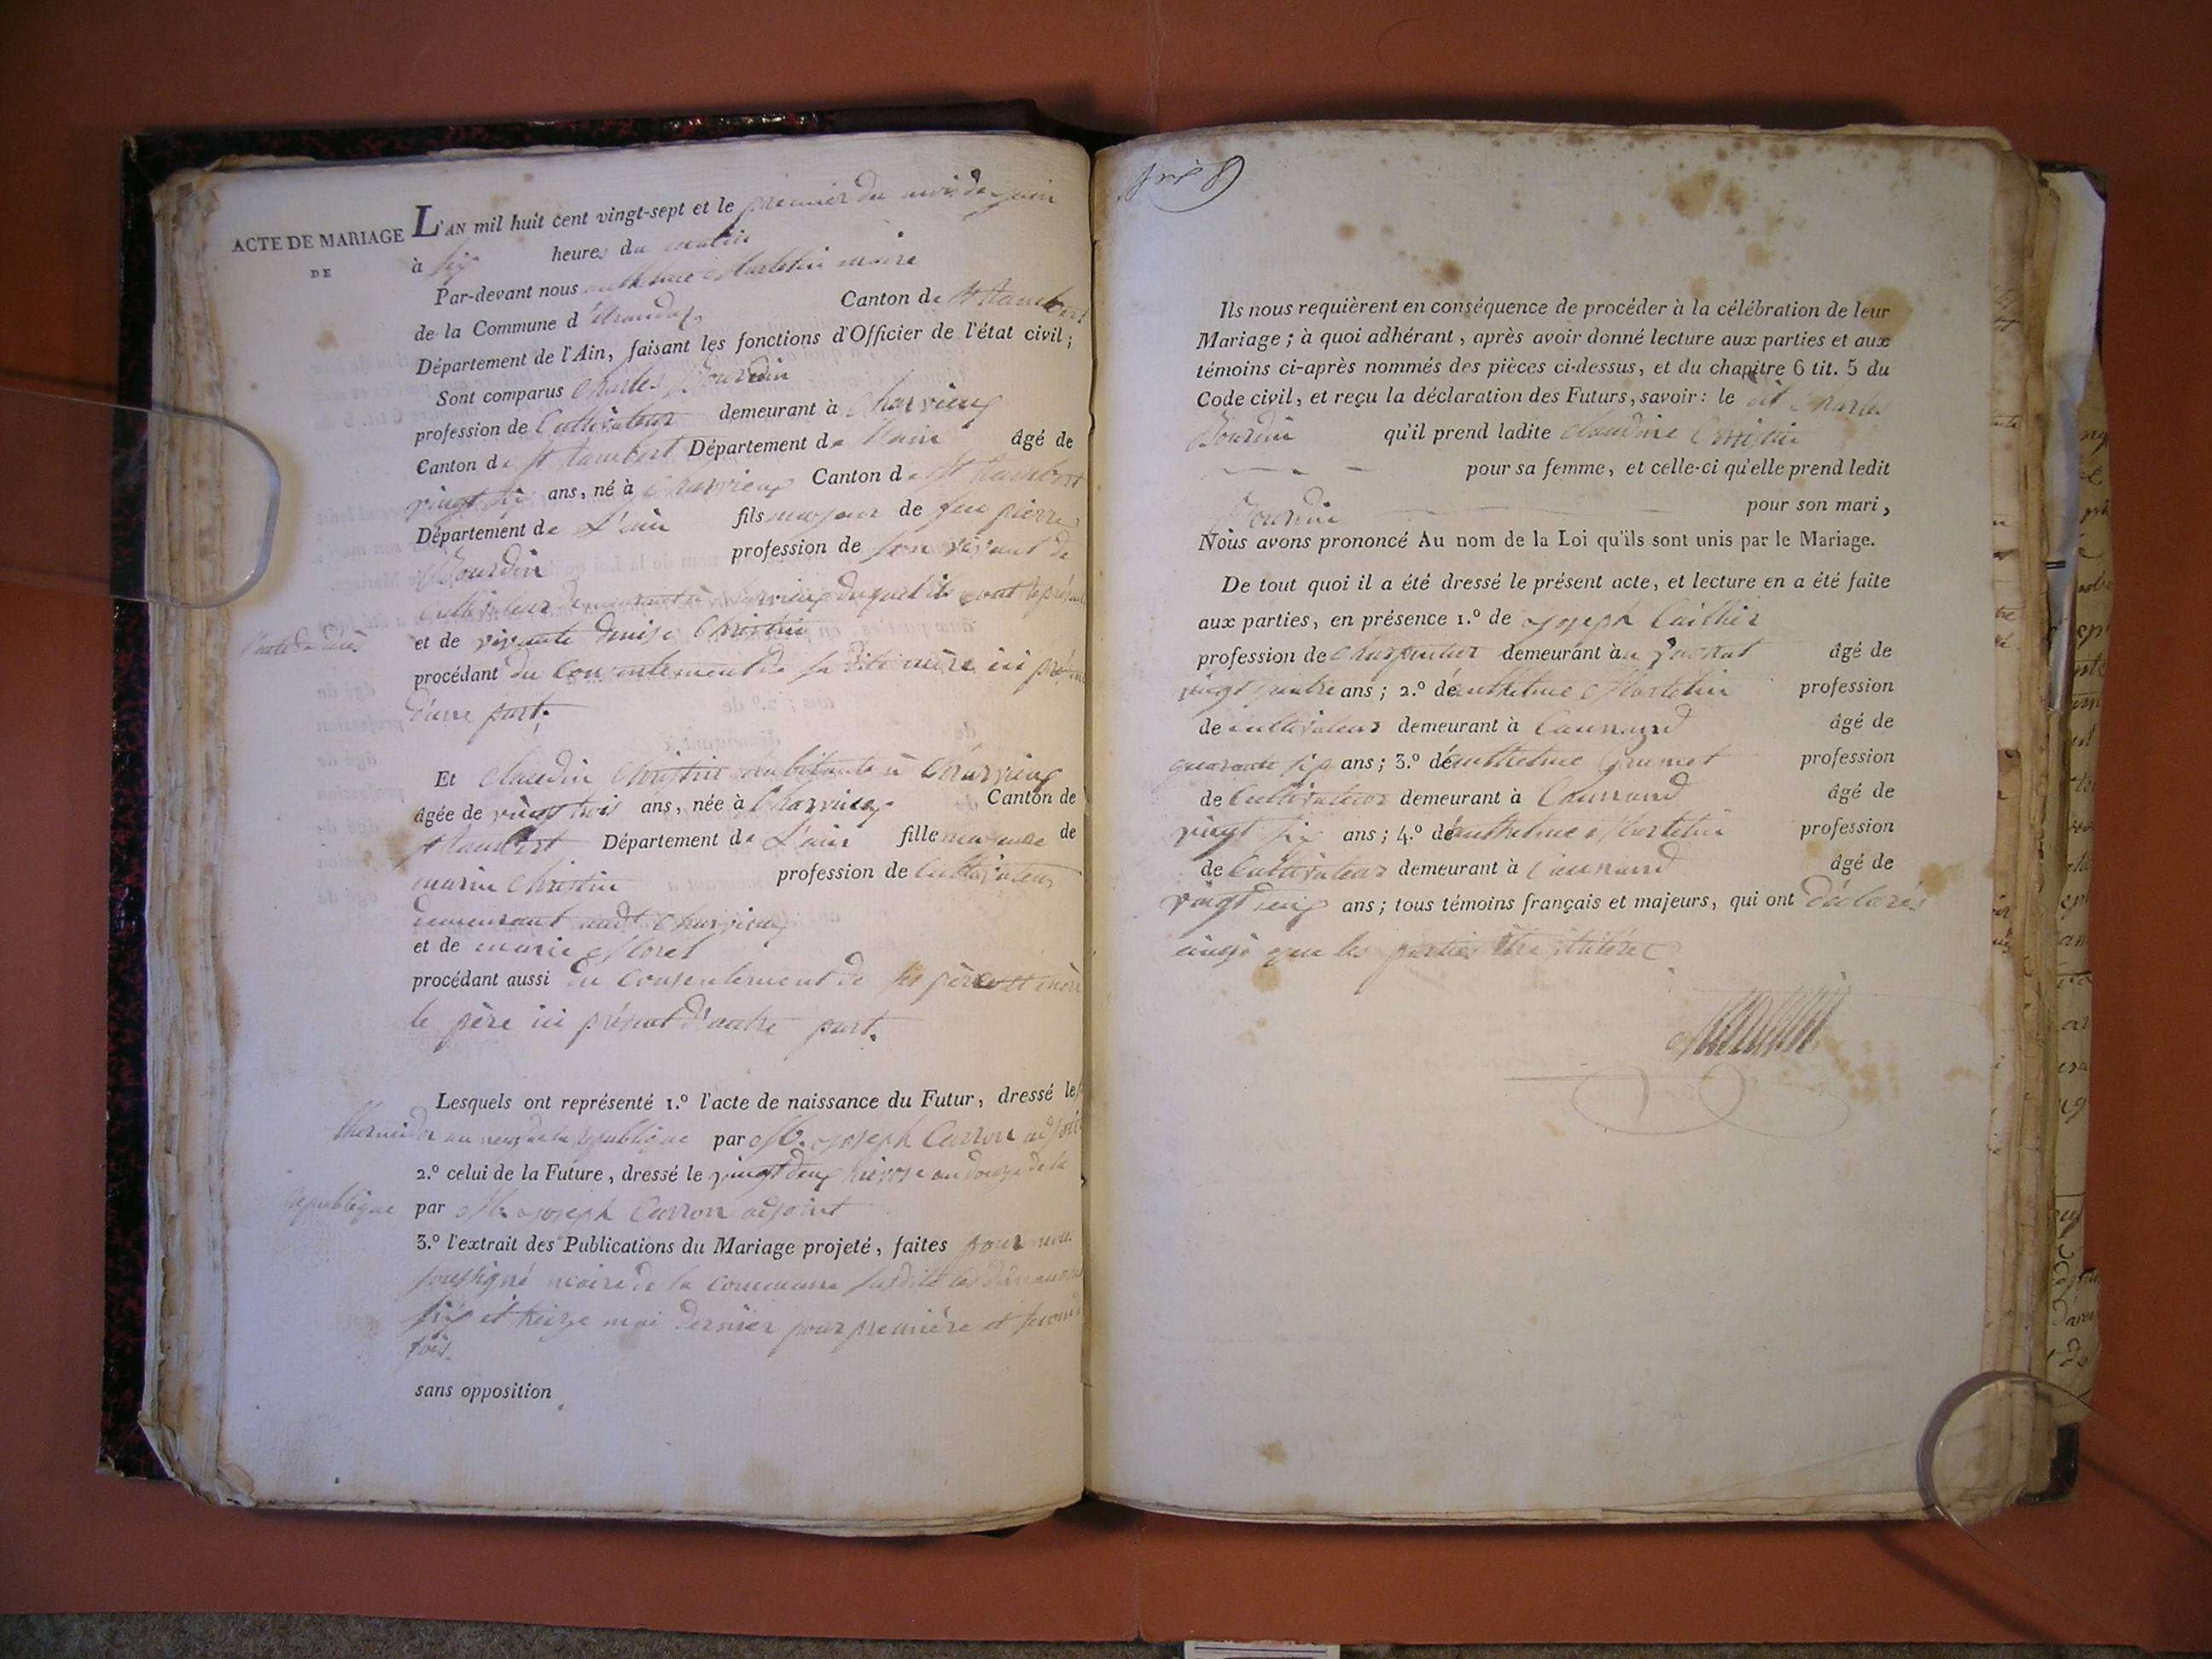 ACTE DE MARIAGE
DE
L'AN mil huit cent vingt-sept et le premier du mois de juin
à six heures du matin
Par-devant nous anthelme Martelin maire
de la Commune d'Arandas Canton de St Rambert
Département de l'Ain, faisant les fonctions d'Officier de l'état civil;
Sont comparus Charles Bourdin
profession de Cultivateur demeurant à Charvieux
Canton de St Rambert Département de l'ain âgé de
vingt six ans, né à Charvieux Canton de St Rambert
Département de L'ain fils majeur de feu pierre
Bourdin profession de son vivant
cultivateur demeurant à Charvieux duquel ils ont représenté
l'acte de décès
et de vivante denise Christin
procédant du consentement de sa dite mère ici
d'une part;
Et Claudine Christin à Charvieux
âgée de vingt trois ans, née à Charvieux Canton de
St Rambert Département de L'ain fille majeure de
marin Christin profession de Cultivateur
demeurant audt Charvieux
et de marie Moret
procédant aussi du consentement de ses père et mère
le père ici présent d'autre part.
Lesquels ont représenté 1.º l'acte de naissance du Futur, dressé le
thermidor an neuf de la république par M. joseph Carron adjoint
2.º celui de la Future, dressé le vingt deux nivose an douze de la
république par M. joseph Carron adjoint
3.º l'extrait des Publications du Mariage projeté, faites pour nous
soussigné maire de la commune susdite les dimanches
six et treize mai dernier pour première et seconde
fois.
sans opposition
Ils nous requièrent en conséquence de procéder à la célébration de leur
Mariage; à quoi adhérant, après avoir donné lecture aux parties et aux
témoins ci-après nommés des pièces ci-dessus, et du chapitre 6 tit. 5 du
Code civil, et reçu la déclaration des Futurs, savoir: le dit Charles
Bourdin qu'il prend ladite Claudine Christin
pour sa femme, et celle-ci qu'elle prend ledit
Bourdin pour son mari,
Nous avons prononcé Au nom de la Loi qu'ils sont unis par le Mariage.
De tout quoi il a été dressé le présent acte, et lecture en a été faite
aux parties, en présence 1.º de joseph
profession de Charpentier demeurant à âgé de
vingt quatre ans; 2.º de anthelme Martelin profession
de cultivateur demeurant à âgé de
quarante six ans; 3.º de anthelme Grumet profession
de Cultivateur demeurant à âgé de
vingt six ans; 4.º de anthelme Martelin profession
de Cultivateur demeurant à âgé de
vingt ans; tous témoins français et majeurs, qui ont déclarés
ainsi que les parties être